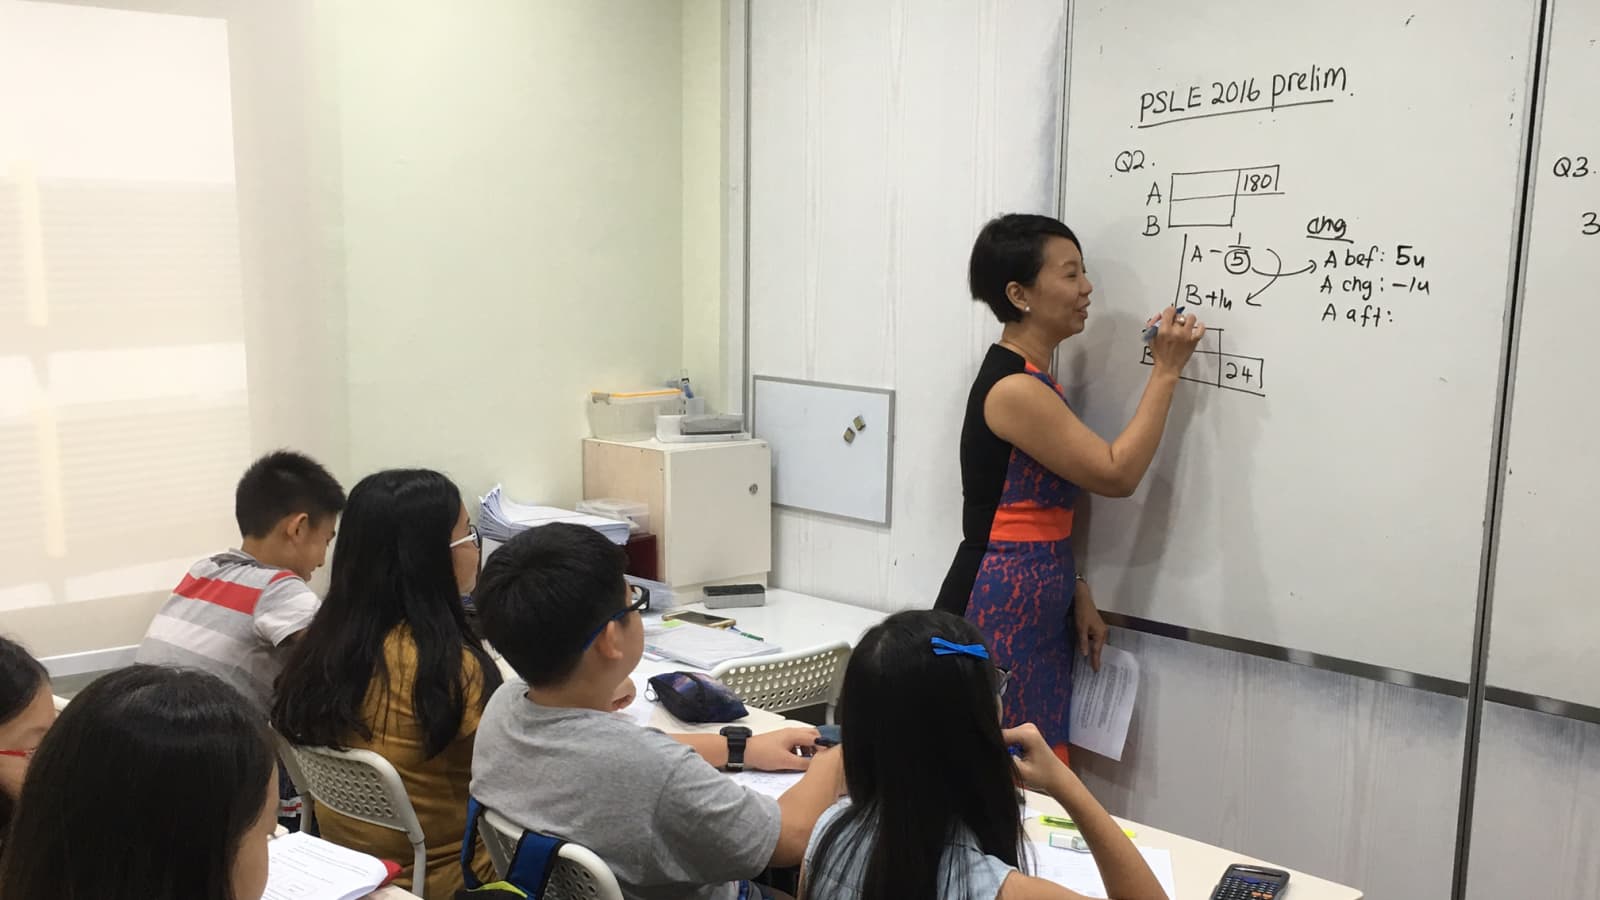 PSLE 2016 prelim.
Q2.
A 180
B
A - 1/5
B + 1u
B 24
chg
A bef: 5u
A chg: -1u
A aft:
Q3.
3